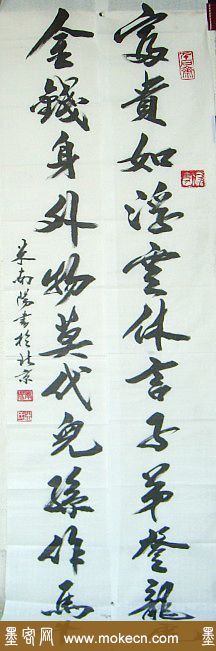 富貴如浮雲休言子弟登龍
金錢身外物莫代兒孫作馬
米南陽書於北京
墨客网 www.mokecn.com 墨客网